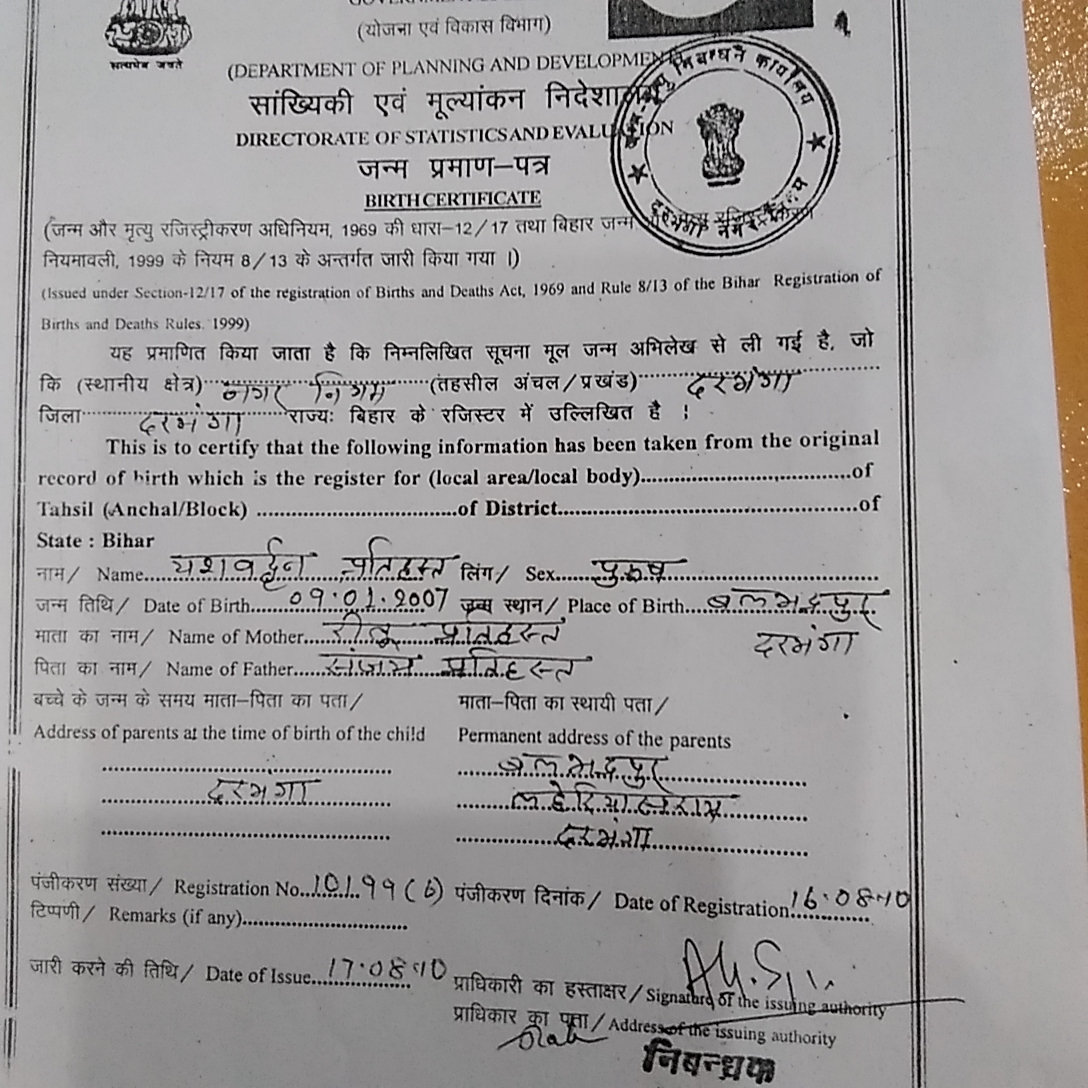 सत्यमेव जयते
(योजना एवं विकास विभाग)
(DEPARTMENT OF PLANNING AND DEVELOPMENT)
सांख्यिकी एवं मूल्यांकन निदेशालय
DIRECTORATE OF STATISTICS AND EVALUATION
जन्म प्रमाण-पत्र
BIRTH CERTIFICATE
(जन्म और मृत्यु रजिस्ट्रीकरण अधिनियम, 1969 की धारा-12/17 तथा बिहार जन्म
नियमावली, 1999 के नियम 8/13 के अन्तर्गत जारी किया गया ।)
(Issued under Section-12/17 of the registration of Births and Deaths Act, 1969 and Rule 8/13 of the Bihar Registration of
Births and Deaths Rules. 1999)
यह प्रमाणित किया जाता है कि निम्नलिखित सूचना मूल जन्म अभिलेख से ली गई है, जो
कि (स्थानीय क्षेत्र) नगर निगम (तहसील अंचल/प्रखंड) दरभंगा
जिला दरभंगा राज्यः बिहार के रजिस्टर में उल्लिखित है ।
This is to certify that the following information has been taken from the original
record of birth which is the register for (local area/local body)..............................of
Tahsil (Anchal/Block) ..............................of District..............................of
State : Bihar
नाम/ Name... यशवर्द्धन प्रतिहस्त लिंग/ Sex... पुरुष
जन्म तिथि/ Date of Birth... 09.01.2007 जन्म स्थान/ Place of Birth... बलभद्रपुर
दरभंगा
माता का नाम/ Name of Mother... प्रतिहस्त
पिता का नाम/ Name of Father... प्रतिहस्त
बच्चे के जन्म के समय माता-पिता का पता/ माता-पिता का स्थायी पता/
Address of parents at the time of birth of the child Permanent address of the parents
बलभद्रपुर
दरभंगा लहेरियासराय
दरभंगा
पंजीकरण संख्या/ Registration No... 10199 (6) पंजीकरण दिनांक/ Date of Registration 16.08.10
टिप्पणी/ Remarks (if any)..............................
जारी करने की तिथि/ Date of Issue... 17.08.10
प्राधिकारी का हस्ताक्षर/ Signature of the issuing authority
प्राधिकार का पता/ Address of the issuing authority
निबन्धक